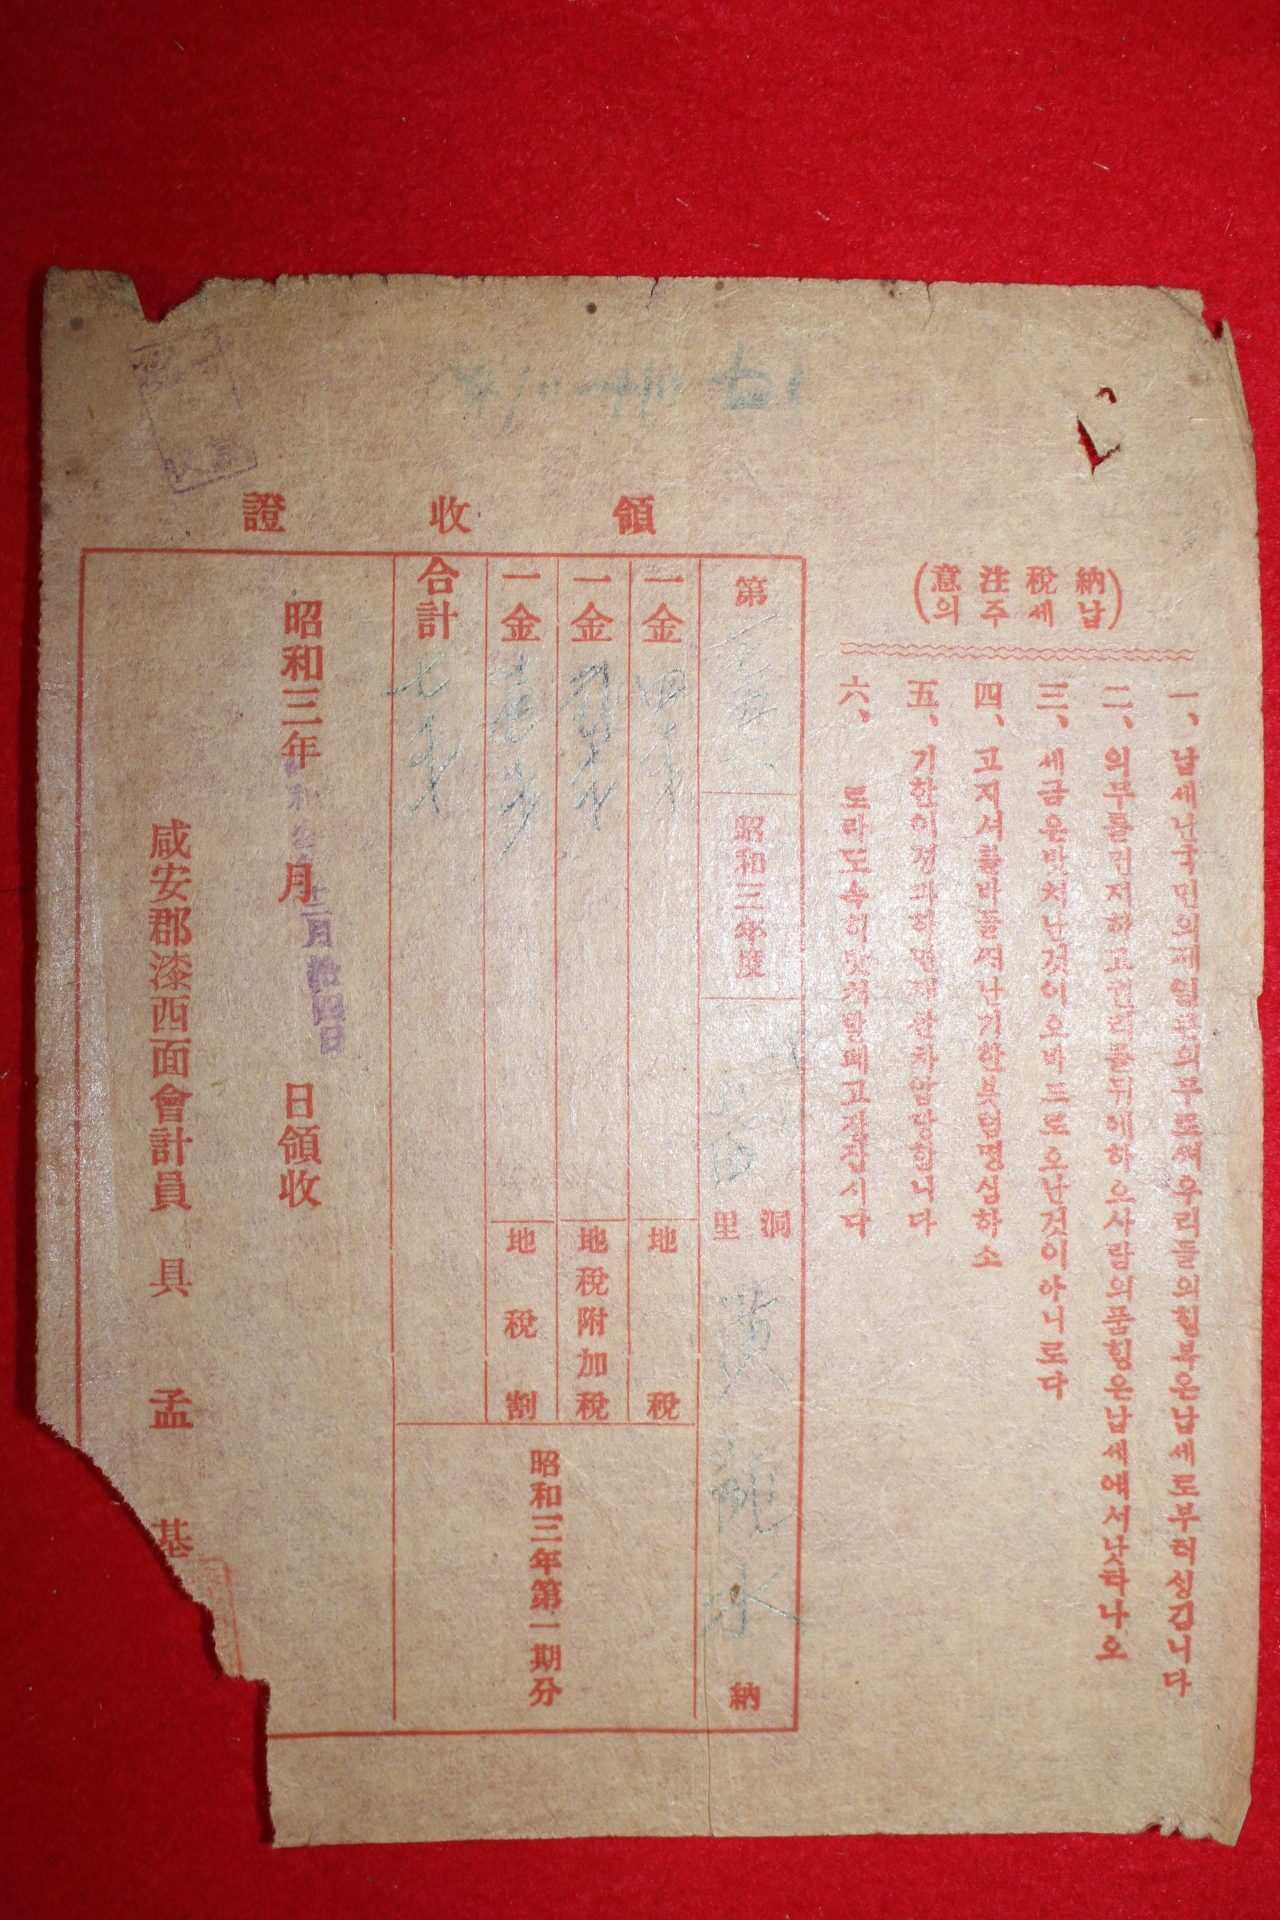 納稅注意
납세주의
一、납세난국민의제일븐의무로써우리들의힝부은납세로부허싱깁니다
二、의무를먼저하고권리를뒤에하으사람의품힝은납세에서낫하나오
三、세금은밧처난것이오바드로오난것이아니로다
四、고지셔를바들써난기한붓텀명심하소
五、기한이경과하면재산차압당합니다
六、로라도속히밧처말폐고자잡시다
領收證
第 昭和三年度 山 洞里 黃龍水 納
一金 四 地稅
一金 地稅附加稅
一金 壱 地稅割
合計 七
昭和三年第一期分
昭和三年 月 日領收
十二月拾四日
咸安郡漆西面會計員 具 孟 基